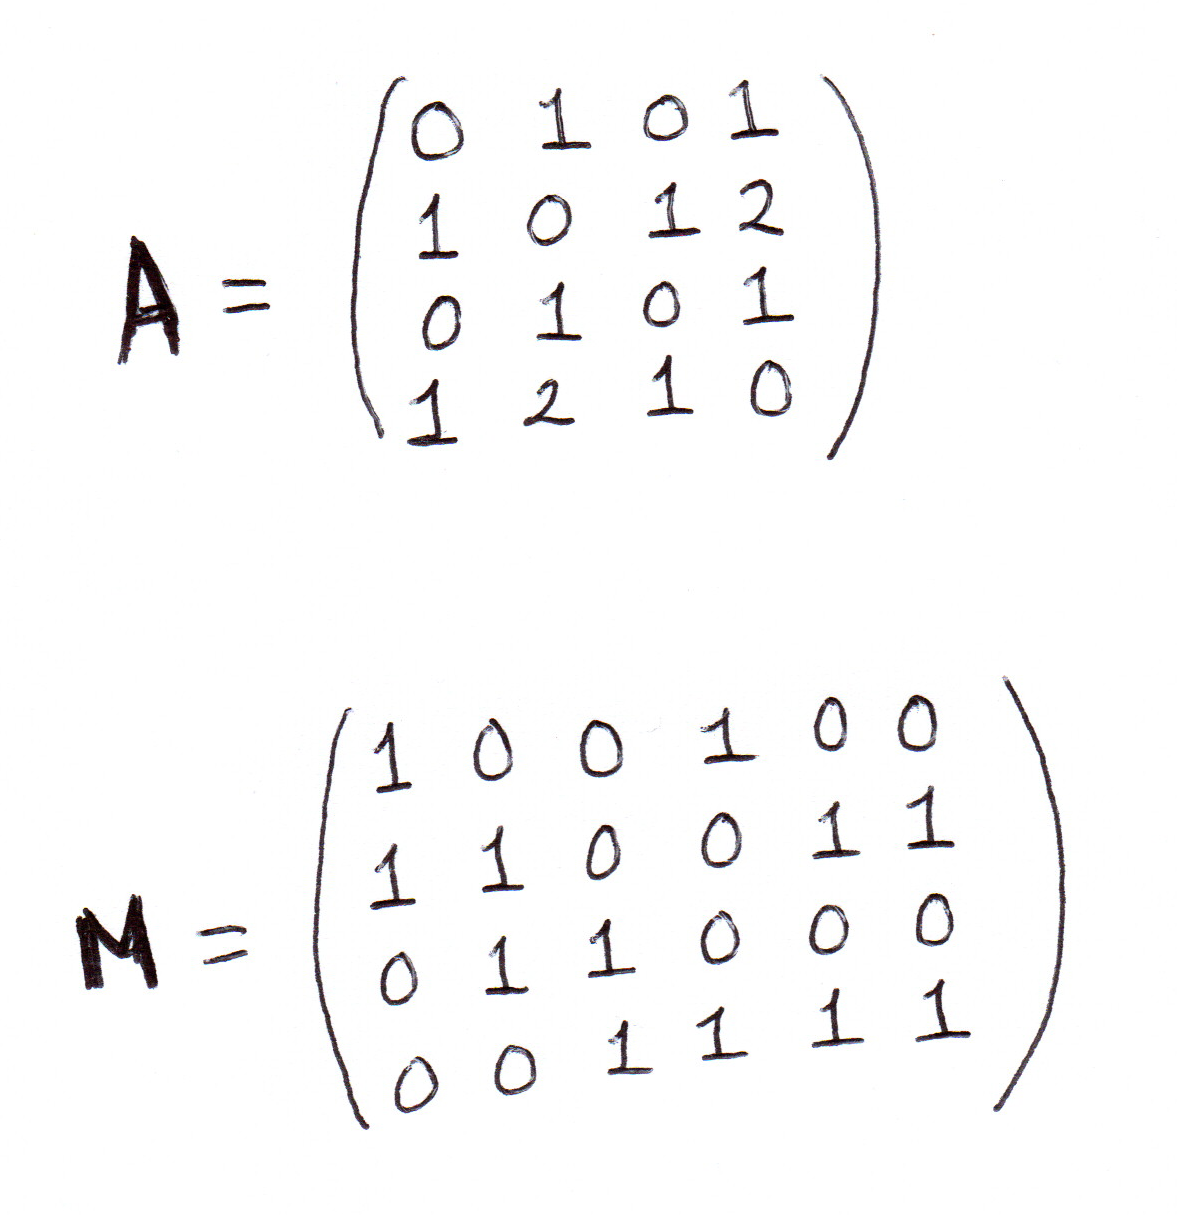 0 1 0 1
1 0 1 2
A = 0 1 0 1
1 2 1 0
1 0 0 1 0 0
1 1 0 0 1 1
M = 0 1 1 0 0 0
0 0 1 1 1 1